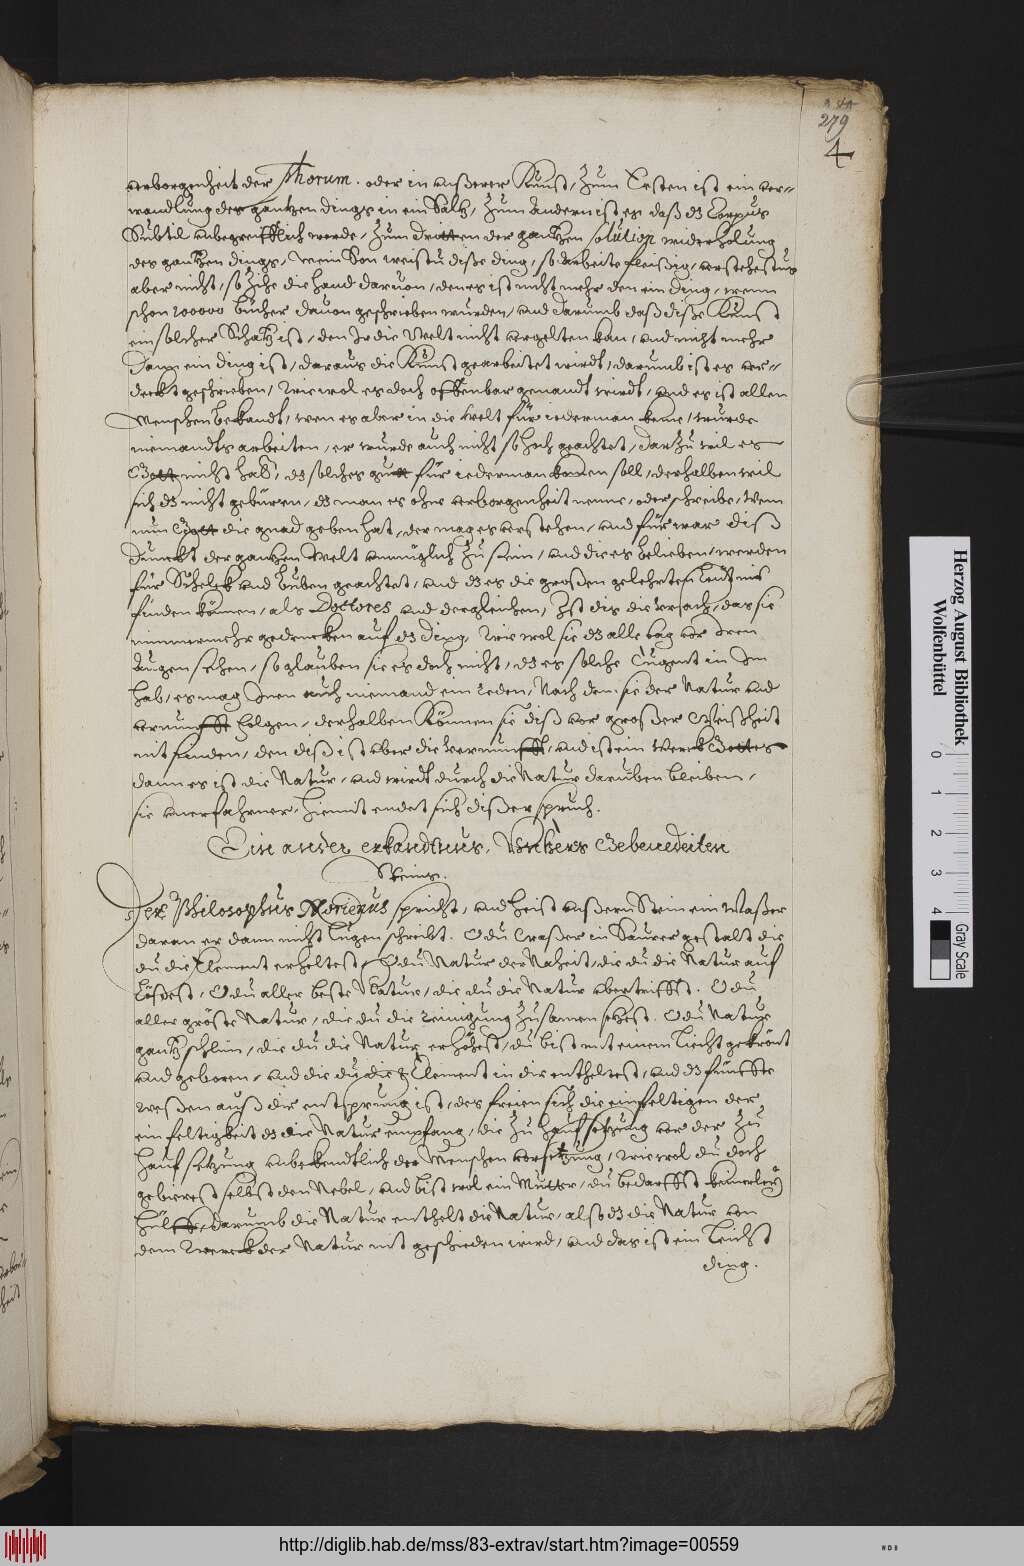 279
4
verborgenheit der Phorum. oder in unßerer Kunst, Zum Ersten ist ein ver-
wandlung des gantzen dings in ein Saltz, Zum Andern ist es daß dz Corpus
Subtil unbegreifflich werde, Zum dritten der gantzen solution widerholung
des gantzen dings, Wem Son weistu diße ding, so arbeite fleißig, verstehestus
aber nicht, so Zihe die hand daruon, den es ist nicht mehr den ein ding, wenn
schon 200000 bücher dauon geschrieben wurden, und darumb daß diße Kunst
ein solcher Schatz ist, den In die Welt nicht vergelten kan, und nicht mehr
Dann ein ding ist, daraus die Kunst gearbeitet wirdt, darumb ist es ver-
deckt geschrieben, Wiewol es doch offenbar genandt wirdt, und es ist allen
Menschen bekandt, wen es aber in die Welt für iederman keme, wurde
niemandts arbeiten, er wurde auch nicht so hoch geachtet, darzu wil es
Gott nicht hab, dz solches gutt für iederman komen soll, derhalben wil
sich dz nicht gebüren, dz man es ohne verborgenheit nenne, oder schreibe, Wem
nun Gott die gnad geben hat, der mag es verstehen, und für war diß
Dunckt der gantzen Welt unmüglich Zu sein, und die es belieben, werden
für Schelck und buben geachtet, und dz es die großen gelehrten Leut nit
finden können, als Doctores und dergleichen, Ist dis die Ursach, das sie
nimmermehr gedencken auf dz Ding, Wie wol sie dz alle tag vor Iren
Augen sehen, so glauben sie es doch nicht, dz es solche Tugent in Im
hab, es mag Inen auch niemand ein reden, Nach dem sie der Natur und
vernunfft folgen, derhalben Können sie diß vor großer Weißheit
nit finden, den diß ist uber die vernunfft, und ist ein Werck Gottes
dann es ist die Natur, und wirdt durch die Natur darüben bleiben,
sie unerfahrner, hiemit endet sich dißer spruch.
Ein ander erkandtnus, Unsers Gebenedeiten
Steins.
Der Philosophus Morienus spricht, und heist unßern Stein ein Waßer
daran er dann nicht lugen schreibt. O du Waßer in Saurer gestalt die
du die Element erheltest, O du Natur der Naheit, die du die Natur auf
Lösest, O du aller beste Natur, die du die Natur ubertriffst. O du
aller gröste Natur, die du die reinigung Zusamen setzest. O du Natur
gantz schlim, die du die Natur erhöhest, du bist mit einem Liecht gekrönt
und geboren, und die du die 4 Element in dir entheltest, und dz fünffte
weßen auß dir entsprung ist, des freien sich die einfeltigen der
einfeltigkeit dz die Natur empfang, die Zu hauf setzung vor der Zu
hauf setzung unbekendtlich der Menschen vorsetzung, wiewol du doch
gebierest selbst den Nebel, und bist wol ein Mutter, du bedarffst keinerley
hülff, darumb die Natur enthelt die Natur, also dz die Natur von
dem Zweck der Natur nit geschieden wird, und das ist ein Leicht
ding.
Herzog August Bibliothek
Wolfenbüttel
0 1 2 3 4
Gray Scale
http://diglib.hab.de/mss/83-extrav/start.htm?image=00559